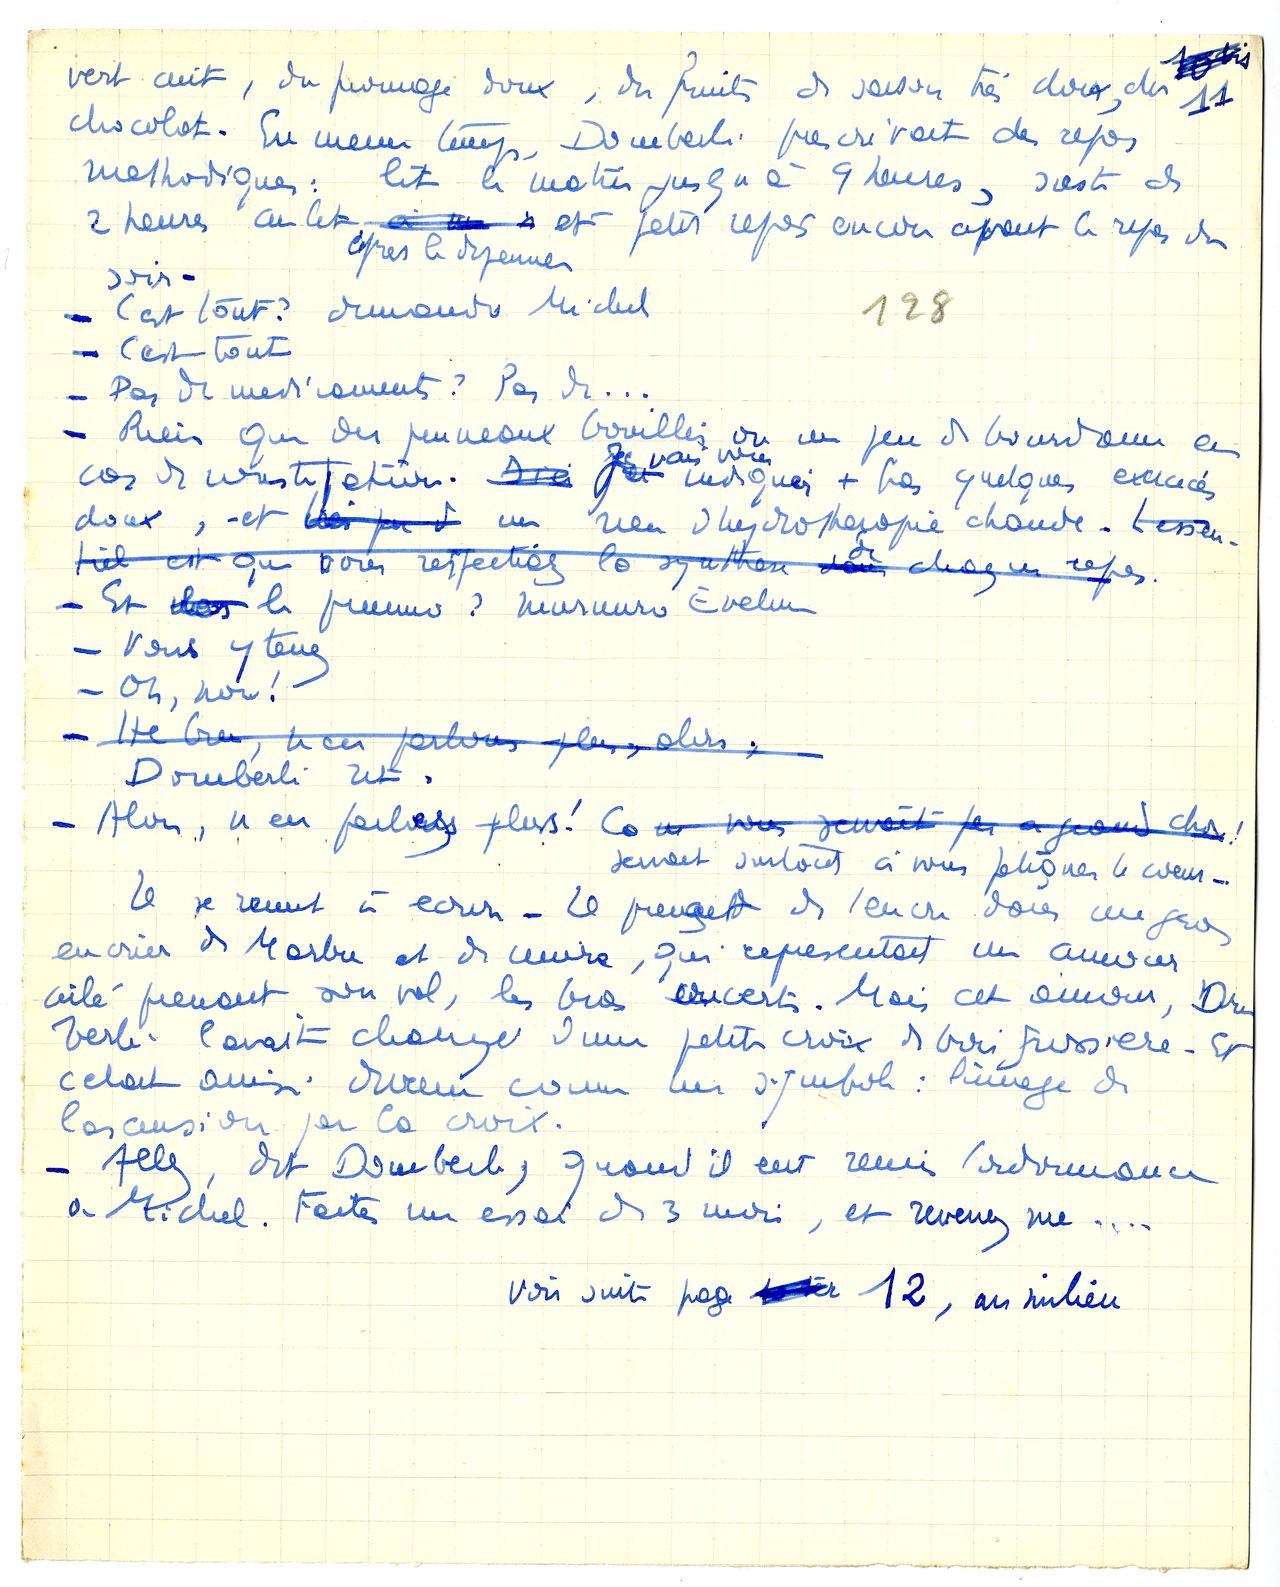 10 bis
11
vert cuit, du fromage doux, des fruits de saison très doux, du
chocolat. En meme temps, Domberlé prescrivait des repos
methodiques: lit le matin jusqu'à 9 heures, sieste de
2 heures au lit et petit repos encore avant le repas du
après le dejeuner
soir.
- C'est tout? demanda Michel
128
- C'est tout
- Pas de medicaments? Pas de...
- Rien que des pruneaux bouillis ou un peu de bourdaine en
cas de constipation. Je vais vous indiquer + bas quelques exercices
doux, et un rien d'hydrotherapie chaude. L'essen-
tiel est que vous respectiez la synthese de chaque repas.
- Et le pneumo? murmura Evelyne
- Vous y tenez
- Oh, non!
- He bien, n'en parlons plus, alors,
Domberlé rit.
- Alors, n'en parlons plus! Ca ne vous servait pas a grand chose!
servait surtout à vous fatiguer le coeur.
Il se remit à ecrire. Il prenait de l'encre dans un gros
encrier de Marbre et de cuivre, qui representait un amour
ailé prenant son vol, les bras ouverts. Mais cet amour, Dom
berlé l'avait chargé d'une petite croix de bois grossière. Et
c'etait ainsi devenu comme un symbole: l'image de
l'ascension par la croix.
- Allez, dit Domberlé, quand il eut remis l'ordonnance
a Michel. Faites un essai de 3 mois, et revenez me ....
Voir suite page 12, au milieu